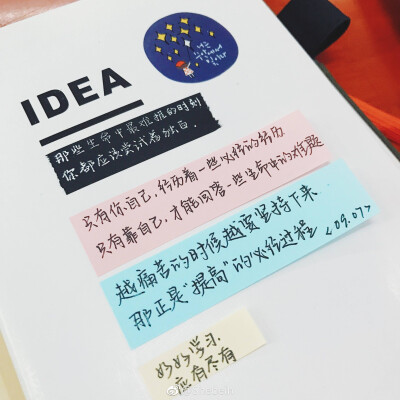 IDEA
那些生命中最难捱的时刻
你都应该尝试着独白.
只有你自己,经历着一些必经的经历
只有靠自己,才能回答一些生命中的难题
越痛苦的时候越要坚持下来
那正是"提高"的必经过程 <09.07>
好好学习.
应有尽有